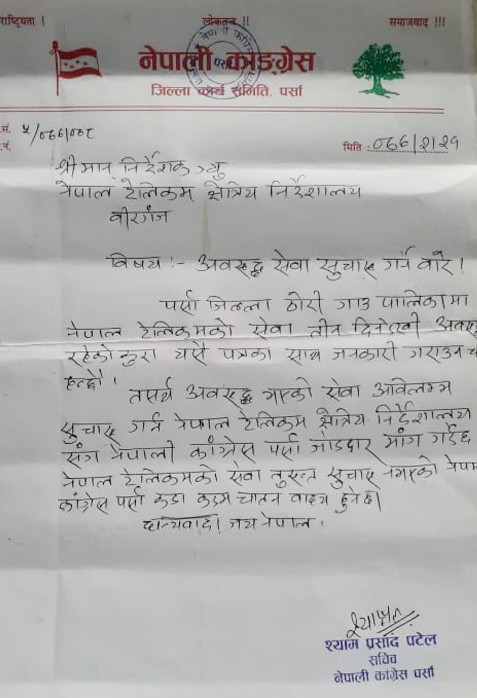 राष्ट्रियता ! लोकतन्त्र !! समाजवाद !!!
नेपाली काङ्ग्रेस
जिल्ला कार्य समिति, पर्सा
मिति : ०७७/२/२९
श्रीमान निर्देशक ज्यु
नेपाल टेलिकम क्षेत्रिय निर्देशालय
वीरगंज
विषय :- अवरुद्ध सेवा सुचारु गर्ने बारे ।
पर्सा जिल्ला ठोरी गाउ पालिकामा
नेपाल टेलिकमको सेवा तीन दिनदेखी
रहेको कुरा यसै पत्रका साथ जनकारी गराउन
हन्छौ ।
तसर्थ अवरुद्ध भएको सेवा अविलम्ब
सुचारु गर्न नेपाल टेलिकम क्षेत्रिय निर्देशालय
संग नेपाली कांग्रेस पर्सा जोडदार मांग गर्दछ
नेपाल टेलिकमको सेवा तुरुन्त सुचारु नभएको
कांग्रेस पर्सा कडा कदम चाल्न वाध्य हुनेछ।
धन्यवाद। जय नेपाल ।
श्याम प्रसाद पटेल
सचिव
नेपाली कांग्रेस पर्सा